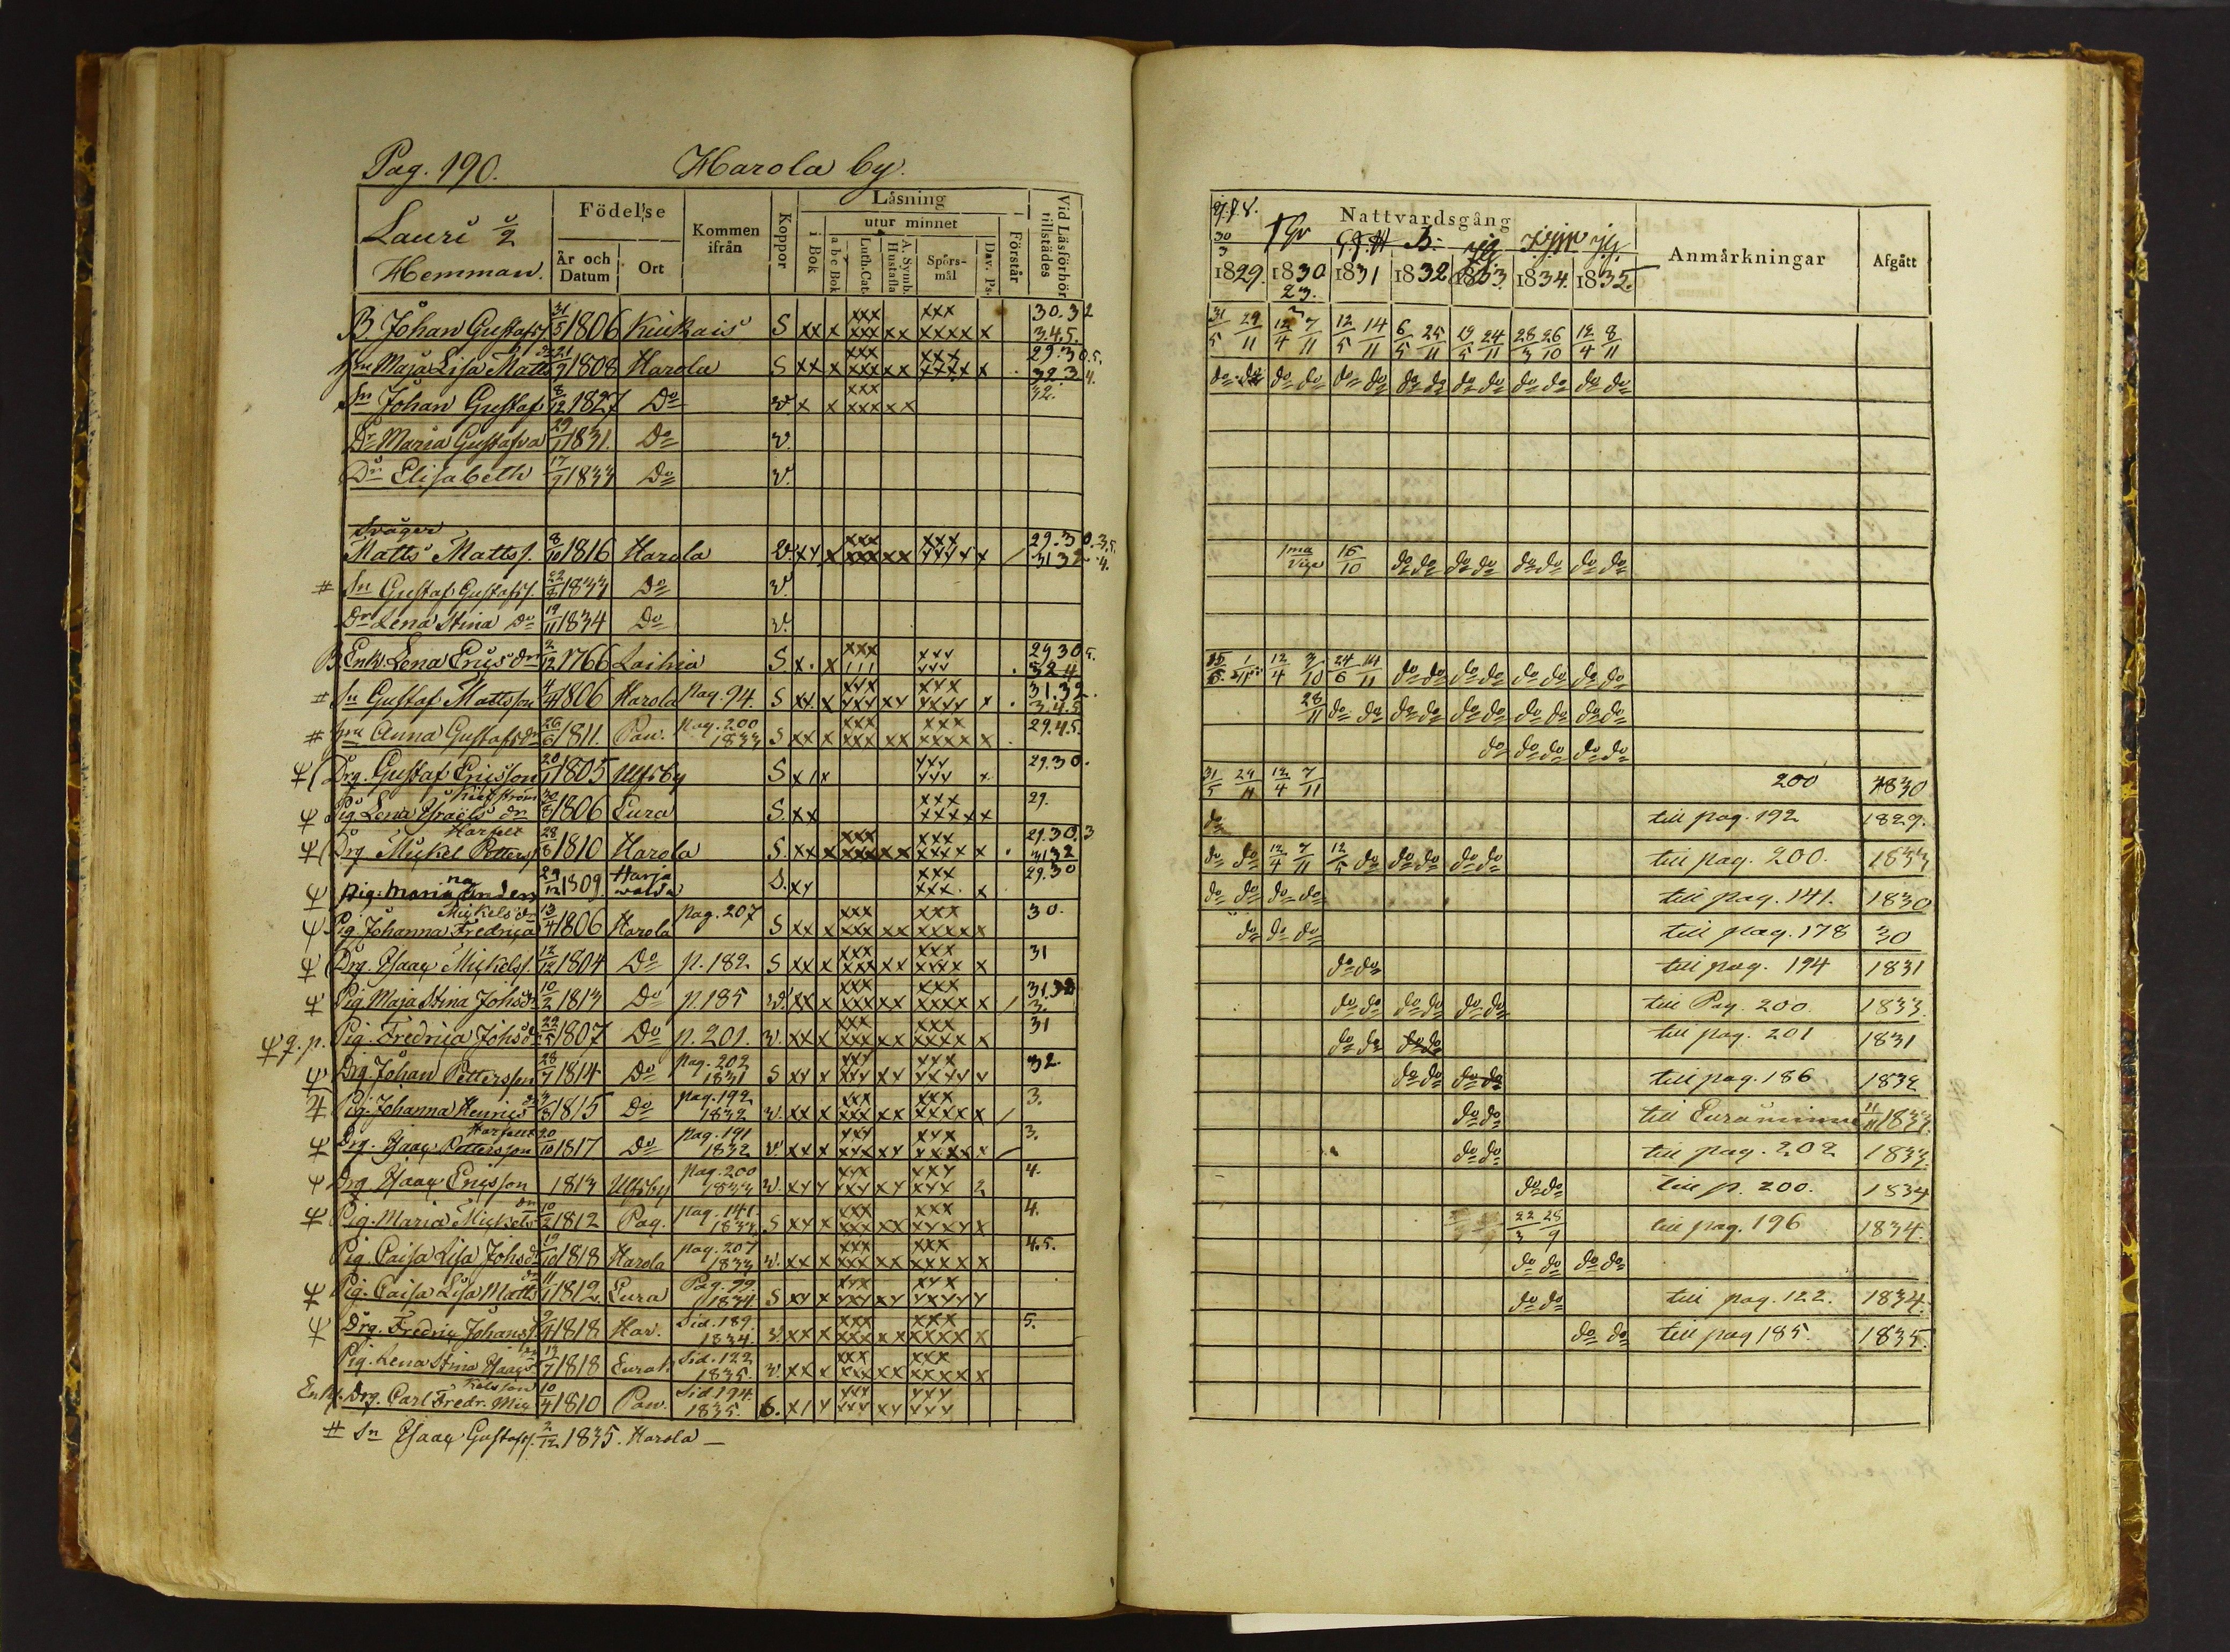 Pag. 190. Harola by.
Lauri ½ Hemman.
Födelse
År och Datum
Ort
Kommen ifrån
Koppor
Läsning
i Bok
utur minnet
a b c Bok
Luth. Cat.
A. Symb. Hustafla
Spörs-mål
Dav. Ps.
Förstår
Vid Läsförhör tillstädes
B. Johan Gustafss. 31/5 1806 Kiukais S xx x xxx xxx xx xxx xxxx x 30.32 3.4.5.
Maja Lisa Matts dr 21/9 1808 Harola S xx x xxx xxx xx xxx xxxx x 29.30.5. 32.3 4.
Sn Johan Gustaf 8/12 1827 Do v x x xxx xxx xx 32.
Dr Maria Gustafva 29/1 1831. Do v.
Dr Elisabeth 17/9 1833 Do v.
Svåger
Matts Mattss. 8/10 1816 Harola v xx x xxx xxx xx xxx xxxx x / 29.30.3.5. 3132.4.
# Sn Gustaf Gustafss. 22/8 1833 Do v.
Dr Lena Stina Do 19/11 1834 Do v.
B. Enk. Lena Erics dr 2/12 1766 Laihia S x. x xxx 111 xxx xxx . 29305. 324
# Sn Gustaf Mattsson 4/4 1806 Harola Pag. 94. S xx x xxx xxx xx xxx xxxx x . 31.32. 3.4.5
# Anna Gustafs dr 26/6 1811. Paw. pag. 200 1833 S xx x xxx xxx xx xxx xxxx x . 29.4.5.
Drg. Gustaf Ericsson 20/1 1805 Ulfsby S x 1 x xxx xxx x 29.30.
Pig. Lena Israels dr 30/8 1806 Eura S. xx xxx xxxx x 29.
Harfelt
Drg Mickel Petterss. 28/8 1810 Harola S. xx x xxx xxx xx xxx xxxx x . 29.30.3 3132
pig. maria anders 29/12 1809. Harja walda S. xx xxx xxx. x 29.30
Mickels dr
Pig. Johanna Fredrica 13/4 1806 Harola pag. 207 S xx x xxx xxx xx xxx xxxx x 30.
Drg. Isaac Mickelss. 12/12 1804 Do p. 182 S xx x xxx xxx xx xxx xxxx x 31
Pig Maja Stina Johs dr 10/2 1813 Do p. 185 v. xx x xxx xxx xx xxx xxxx x / 31.32 3.
g. p. Pig. Fredrica Johs dr 22/5 1807 Do p. 201. v. xx x xxx xxx xx xxx xxxx x 31
Drg. Johan Pettersson 28/7 1814 Do pag. 202 1831 S xx x xxx xxx xx xxx xxxx x 32
Pig. Johanna Henrics dr 3/8 1815 Do pag. 192 1832 v. xx x xxx xxx xx xxx xxxx x / 3.
Harfelt
Drg. Isaac Pettersson 20/10 1817 Do pag. 191 1832 v. xx x xxx xxx xx xxx xxxx x / 3.
Drg Isaac Ericsson 1813 Ulfsby pag. 200 1833 v. xx x xxx xxx xx xxx xxx 2 4.
Pig. Maria Mickels dr 10/2 1812 Pag. pag. 141. 1833. S xx x xxx xxx xx xxx xxxx x 4.
Pig. Caisa Lisa Johs dr 19/10 1818 Harola pag. 207 1833 v. xx x xxx xxx xx xxx xxxx x 4.5.
Pig. Caisa Lisa Matts dr 11/1 1812. Eura Pag. 99. 1834 S xx x xxx xxx xx xxx xxxx x
Drg. Fredric Johanss. 9/4 1818 Har. Sid. 189. 1834. v. xx x xxx xxx xx xxx xxxx x 5.
Pig. Lena Stina Isaacs dr 13/7 1818 Sid. 122 1835. v. xx x xxx xxx xx xxx xxxx x
Drg. Carl Fredr. Mickelsson 10/4 1810 Paw. Sid 194. 1835. 6. x 1 x xxx xxx xx xxx xxx
# Sn Isaac Gustafss. 2/12 1835. Harola —
Nattvardsgång
Anmärkningar
Afgått
30/3
1829. 1830 1831 1832 1833. 1834. 1835.
23.
31/5 29/11 12/4 7/11 12/5 14/11 6/5 25/11 19/5 24/11 28/3 26/10 12/4 8/11
do do do do do do do do do do do do do do
1ma 16/10 do do do do do do do do
15/6 1/11 12/4 3/10 24/6 14/11 do do do do do do do do
28/11 do do do do do do do do do do
do do do do do
31/5 29/11 12/4 7/11 200 1830
do till pag. 192 1829.
do do 12/4 7/11 12/5 do do do do do till pag. 200. 1833
do do do do till pag. 141. 1830
do do do till pag. 178 30
do do till pag. 194 1831
do do do do do do till Pag. 200. 1833.
do do do do till pag. 201 1831
do do do do till pag. 186 1832
do do till Euraminne 11/11 1833.
do do till pag. 202 1833.
do do till p. 200. 1834
22/3 28/9 till pag. 196 1834.
do do do do
do do till pag. 122. 1834.
do do till pag 185. 1835.